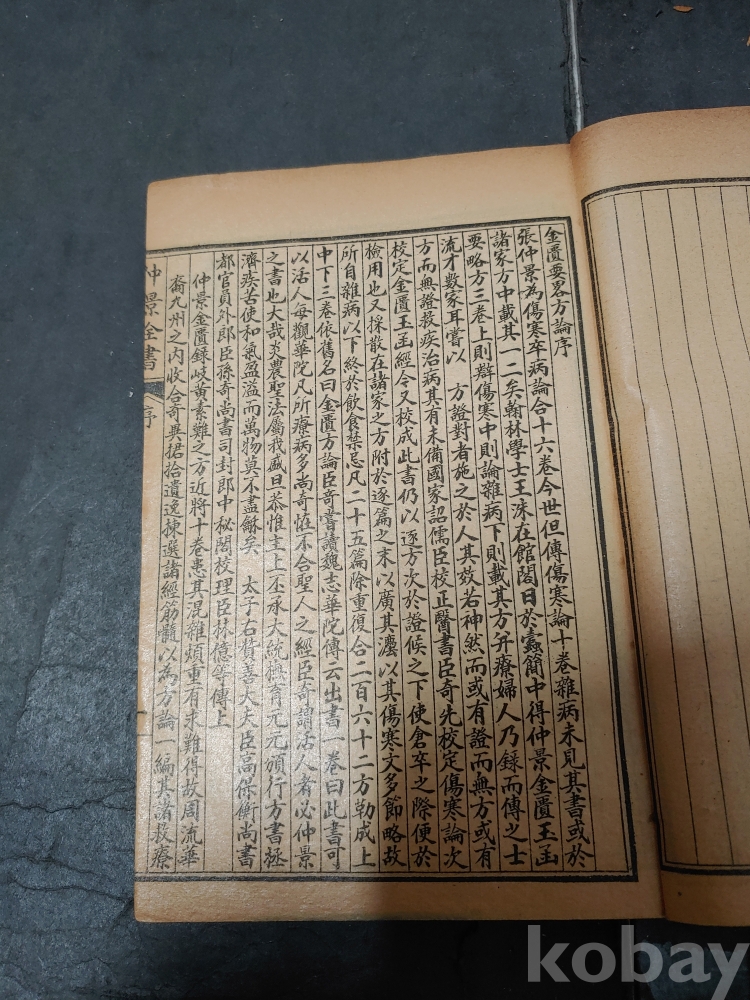 金匱要畧方論序
張仲景為傷寒卒病論合十六卷今世但傳傷寒論十卷雜病未見其書或於
諸家方中載其一二矣翰林學士王洙在館閣日於蠹簡中得仲景金匱玉函
要略方三卷上則辯傷寒中則論雜病下則載其方并療婦人乃錄而傳之士
流才數家耳嘗以 方證對者施之於人其效若神然而或有證而無方或有
方而無證救疾治病其有未備國家詔儒臣校正醫書臣奇先校定傷寒論次
校定金匱玉函經今又校成此書仍以逐方次於證候之下使倉卒之際便於
檢用也又採散在諸家之方附於逐篇之末以廣其灋以其傷寒文多節略故
所自雜病以下終於飲食禁忌凡二十五篇除重復合二百六十二方勒成上
中下三卷依舊名曰金匱方論臣奇嘗讀魏志華陀傳云出書一卷曰此書可
以活人每觀華陀凡所療病多尚奇怪不合聖人之經臣奇謂活人者必仲景
之書也大哉炎農聖法屬我盛旦恭惟主上丕承大統撫育元元頒行方書拯
濟疾苦使和氣盈溢而萬物莫不盡龢矣 太子右贊善大夫臣高保衡尚書
都官員外郎臣孫奇尚書司封郎中秘閣校理臣林億等傳上
仲景金匱錄岐黃素難之方近將十卷患其混雜煩重有求難得故周流華
裔九州之內收合奇異捃拾遺逸揀選諸經筋髓以為方論一編其諸救療
仲景全書 序
kobay